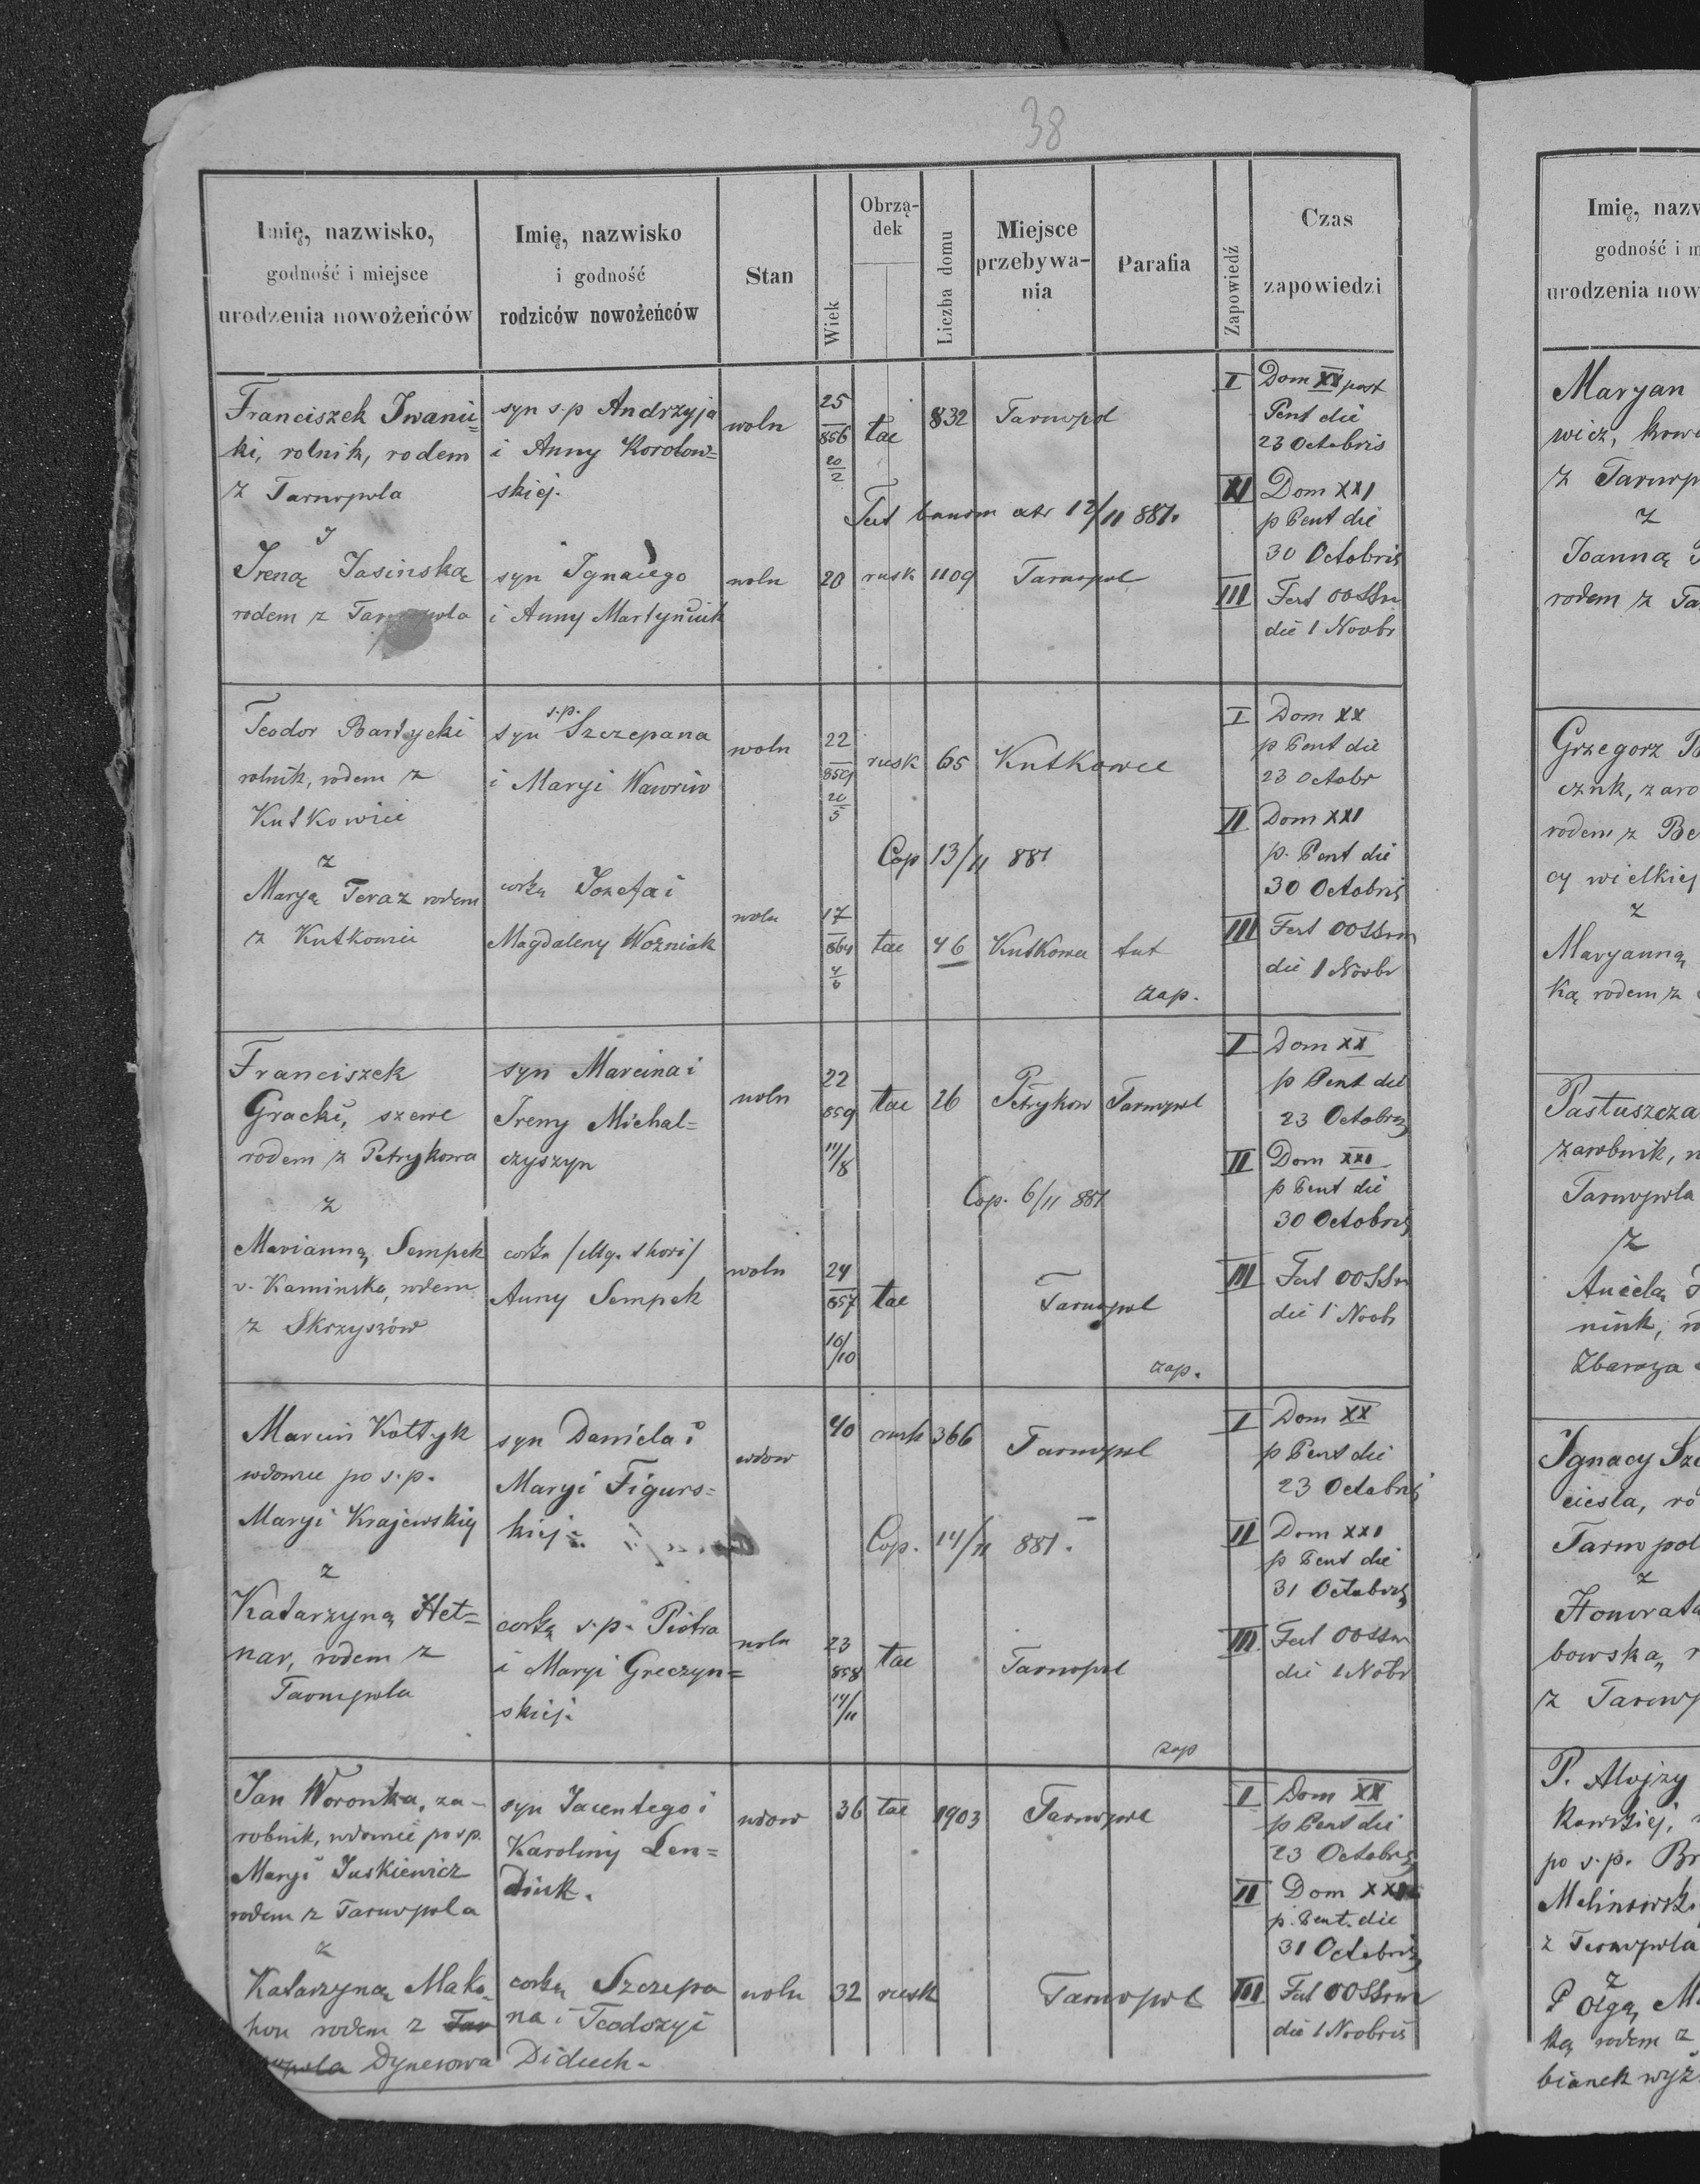 38
Imię, nazwisko,
godność i miejsce
urodzenia nowożeńców
Imię, nazwisko
i godność
rodziców nowożeńców
Stan
Wiek
Obrzą-
dek
Liczba domu
Miejsce
przebywa-
nia
Parafia
Zapowiedź
Czas
zapowiedzi
Franciszek Iwanic=
ki, rolnik, rodem
z Tarnopola
syn s.p Andrzyja
i Anny Korolow=
skiej.
woln
25
856
20
2
łac
832
Tarnopol
I
Dom XX post
Pent die
23 Octobris
II
Dom XXI
p Pent die
30 Octobris
12/11 881.
Ireną Jasinską
rodem z Tarnopola
syn Ignacego
i Anny Martyniuk
woln
20
rusk
1109
Tarnopol
III
Fest OOSSm
die 1 Novbr
Teodor Bartycki
rolnik, rodem z
Kutkowiec
syn s.p. Szczepana
i Maryi Wawriw
woln
22
859
20
5
rusk
65
Kutkowce
I
Dom XX
p Pent die
23 Octobr
II
Dom XXI
p. Pent die
30 Octobris
Cop 13/11 881
z
Maryą Teraz rodem
z Kutkowiec
corką Jozefa i
Magdaleny Wozniak
woln
17
864
4
6
łac
46
Kutkowce
tut
zap.
III
Fest OOSSm
die 1 Novbr
Franciszek
Gracki, szewc
rodem z Petrykowa
syn Marcina i
Ireny Michal=
czyszyn
woln
22
859
11/8
łac
26
Petrykow
Tarnopol
I
Dom XX
p Pent die
23 Octobris
II
Dom XXI
p Pent die
30 Octobris
Cop. 6/11 881
z
Marianną Sempek
v. Kaminska, rodem
z Skrzyszów
Anny Sempek
woln
24
857
10/10
łac
Tarnopol
zap.
III
Fest OOSSm
die 1 Novbr
Marcin Kołtyk
wdowiec po s.p.
Maryi Krajewskiej
syn Daniela i
Maryi Figurs=
kiej
wdow
40
rusk
366
Tarnopol
I
Dom XX
p Pent die
23 Octobris
II
Dom XXI
p Pent die
31 Octobris
Cop. 14/11 881.
z
Katarzyną Het=
nar, rodem z
Tarnopola
corką s.p. Piotra
i Maryi Greczyn=
skiej.
woln
23
858
14/11
łac
Tarnopol
zap
III
Fest OOSSm
die 1 Nobr
Jan Woronka, za-
robnik, wdowiec po sp.
Maryi Juskiewicz
rodem z Tarnopola
syn Jacentego i
Karoliny Len=
diuk.
wdow
36
łac
1903
Tarnopol
I
Dom XX
p Pent die
23 Octobris
II
Dom XXI
p. Pent. die
31 Octobris
z
Katarzyną Mako-
hon rodem z Tar
nopola Dynesowa
corką Szczepa
na i Teodozyi
Diduch.
woln
32
rusk
Tarnopol
III
Fest OOSSm
die 1 Novbris
Imię, nazw
godność i m
urodzenia now
Maryan
wicz, kowa
z Tarnop
z
Joanną
rodem z Ta
Grzegorz
rodem z Be
cy wielkiej
z
Maryanną
ką rodem z
Pastuszcza
zarobnik,
Tarnopola
z
Anielą
Zbaraża
Ignacy
ciesla, ro
Tarnopol
z
Honorata
bowską,
z Tarnop
P. Alojzy
kowskiej,
po s.p. Br
z Tarnopola
z
P Olgą
ką rodem z
bianek wyż